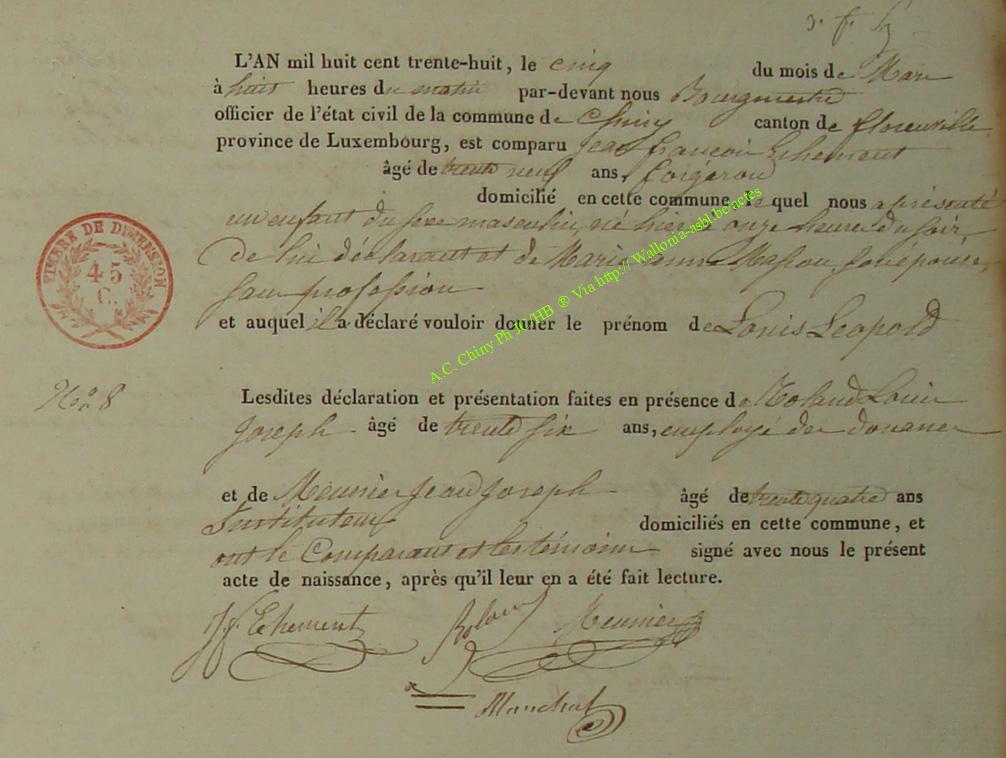 L'AN mil huit cent trente-huit, le cinq du mois de Mars
à huit heures du matin par-devant nous Bourgmestre
officier de l'état civil de la commune de Chiny canton de florenville
province de Luxembourg, est comparu Jean françois Ehement
âgé de trente neuf ans, forgeron
domicilié en cette commune, le quel nous a présenté
un enfant du sexe masculin, né hier à onze heure du soir,
de lui déclarant et de Marie anne Masson, son épouse,
sans profession
et auquel il a déclaré vouloir donner le prénom de Louis Leopold
TIMBRE DE DIMENSION
45
C.
A.C. Chiny Ph JC/HB ® Via http://Wallonia-asbl.be.actes
No. 8
Lesdites déclaration et présentation faites en présence de Roland Louis
Joseph âgé de trente six ans, employé des douanes
et de Meunier Jean Joseph âgé de trente quatre ans
Instituteur domiciliés en cette commune, et
ont le Comparant et les témoins signé avec nous le présent
acte de naissance, après qu'il leur en a été fait lecture.
JF Ehement Roland Meunier
Manchat